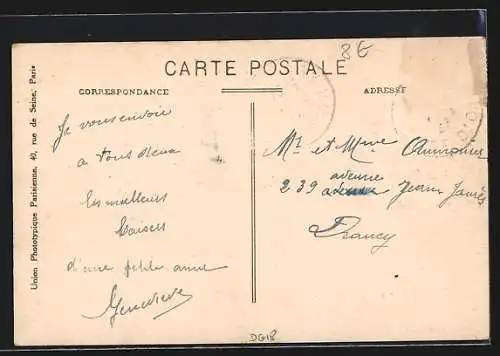 8G
CARTE POSTALE
CORRESPONDANCE
ADRESSE
Je vous envoie
a tous deux
les meilleurs
baisers
d'une petite amie
Geneviève
Mr et Mme
avenue
239 avenue Jean Jaurès
Drancy
Union Phototypique Parisienne, 49, rue de Seine, Paris
DG18